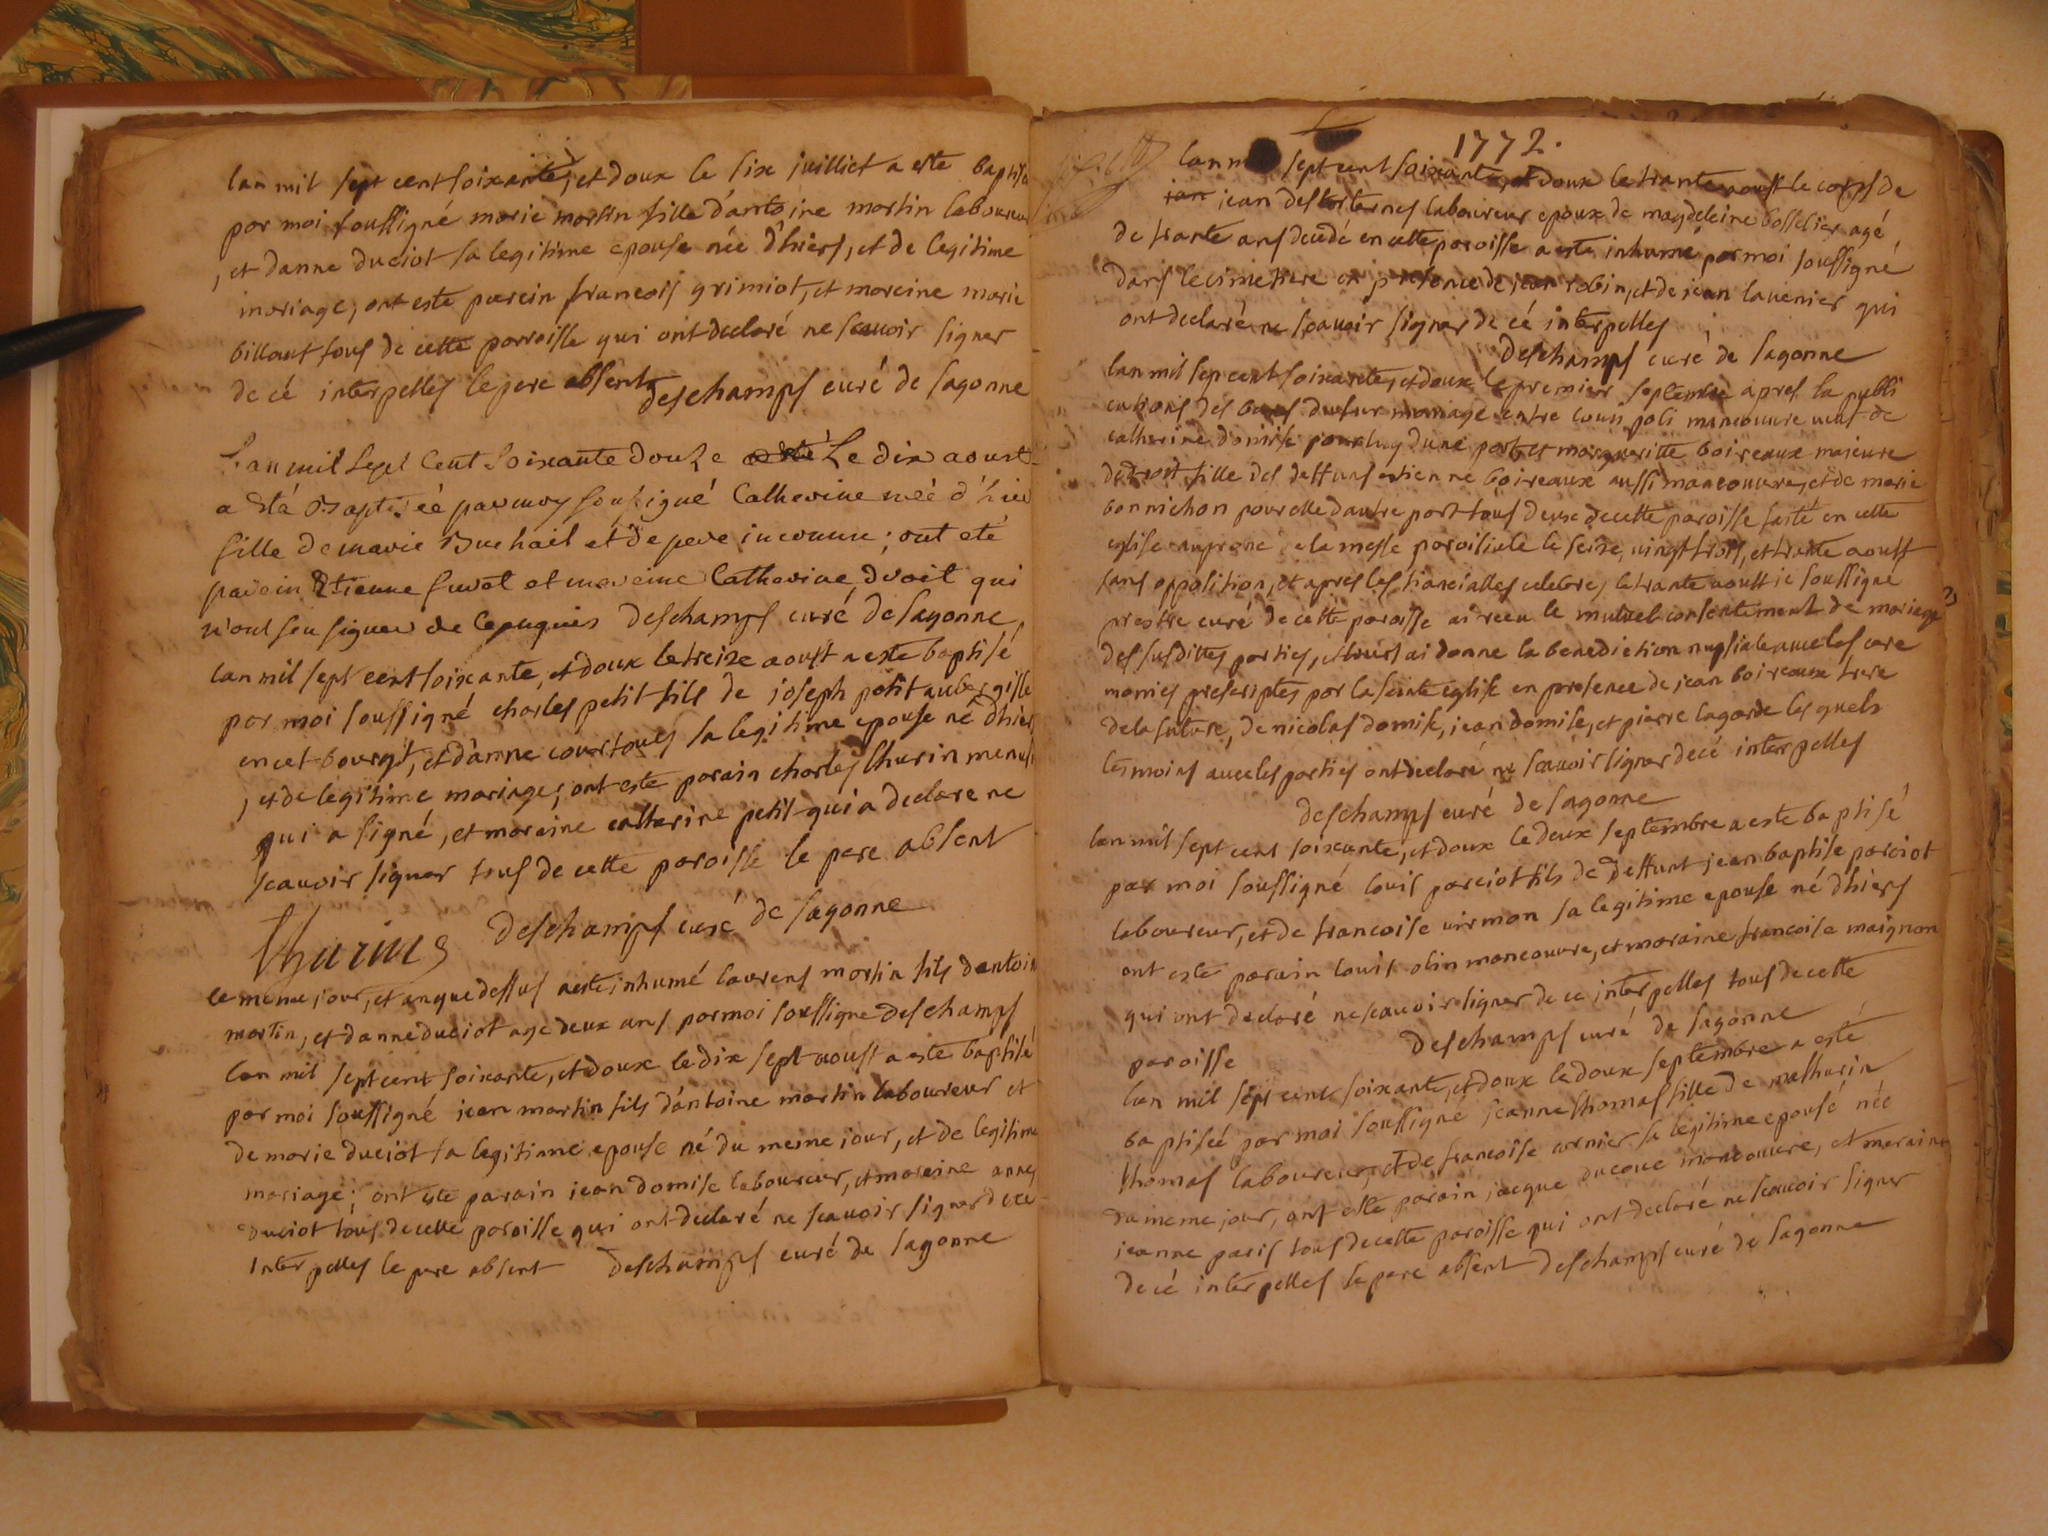 lan mil sept cent soixante, et doux le six juilliet a este baptisé
par moi soussigné marie martin fille dantoine martin laboureur
, et danne duciot sa legitime epouse née d'hiers, et de legitime
mariage, ont este parein francois grimiot, et mareine marie
billaut tous de cette parroisse qui ont declaré ne scavoir signer
de cé interpelles le pere absent deschamps curé de sagonne
L'an mil sept Cent Soixante douze Le dix aoust
a été Baptisée par moy soussigné Catherine née d'hier
fille de marie Buchail et de pere inconnu ; ont eté
parain Etienne furet et mareine Catherine droit qui
n'ont seu signer de Ce enquis deschamps curé de sagonne
lan mil sept cent soixante, et doux le treize aoust a este baptisé
par moi soussigné charles petit fils de joseph petit aubergiste
en cet bourgt, et d'anne courtoues sa legitime epouse né dhiers
, et de legitime mariage, ont este parain charles thurin menusi
qui a signé, et maraine catherine petit qui a declare ne
scavoir signer tous de cette paroisse le pere absent
thurin deschamps curé de sagonne
ce meme jour, et an que dessus a este inhumé laurens martin fils dantoin
martin, et danne duciot age deux ans par moi soussigne deschamps
lan mil sept cent soixante, et doux le dix sept aoust a este baptisé
par moi soussigné jean martin fils d'antoine martin laboureur et
de marie duciot sa legitime epouse né du meme jour, et de legitime
mariage ; ont este parain jean domise laboureur, et maraine anne
duciot tous de cette paroisse qui ont declaré ne scavoir signer de ce
interpelles le pere absent deschamps curé de sagonne
1772.
lan sept cent soixante, et doux le trante aoust le corps de
jan jean des laboureur epoux de magdeleine bosselier agé
de trante ans decedé en cette paroisse a este inhumé par moi soussigné
dans le cimetiere en presence de jean robin, et de jean lavenier qui
ont declaré ne scavoir signer de cé interpelles
deschamps curé de sagonne
lan mil sep cent soixante, et doux le premier septembre apres la publi
cations des bans du futur mariage entre louis poli manouvre veuf de
catherine domise pour luy dune part et margueritte boireaux majeure
de droit fille des deffuns estienne boireaux aussi manoeuvre, et de marie
bonnichon pour elle d'autre part tous deux de cette paroisse faite en cette
eglise au prone de la messe paroisiale le seize, vingt trois, et trante aoust
sans opposition, et apres les fiancialles celebres le trante aoust je soussigne
prestre curé de cette paroisse ai receu le mutuel consentement de mariage
des susdittes parties, et leurs ai donne la benediction nupsiale avec les cere
monies prescriptes par la sainte eglise en presence de jean boireaux frere
de la future, de nicolas domise, jean domise, et pierre lagarde les quels
temoins avec les parties ont declaré ne scavoir signer de cé interpelles
deschamps curé de sagonne
lan mil sept cent soixante, et doux le deux septembre a este baptisé
par moi soussigné louis parciot fils de deffunt jean baptise parciot
laboureur, et de francoise virmon sa legitime epouse né d'hiers
ont este parain louis olin manoeuvre, et maraine francoise maignon
qui ont declaré ne scavoir signer de ce interpelles tous de cette
paroisse deschamps curé de sagonne
lan mil sept cent soixante, et doux le doux septembre a esté
baptiséé par moi soussigné jeanne thomas fille de mathurin
thomas laboureur, et de francoise cornier sa legitime epousé néé
du meme jour, ont este parain jacque ducoue manoeuvre, et maraine
jeanne paris tous de cette paroisse qui ont declaré ne scavoir signer
de cé interpelles le pere absent deschamps curé de sagonne